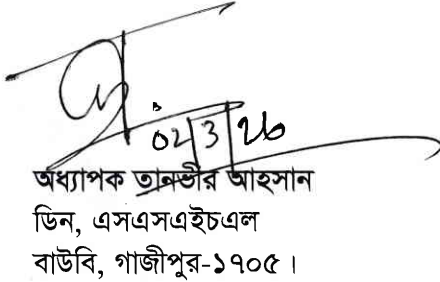 02/3/26
অধ্যাপক তানভীর আহসান
ডিন, এসএসএইচএল
বাউবি, গাজীপুর-১৭০৫।